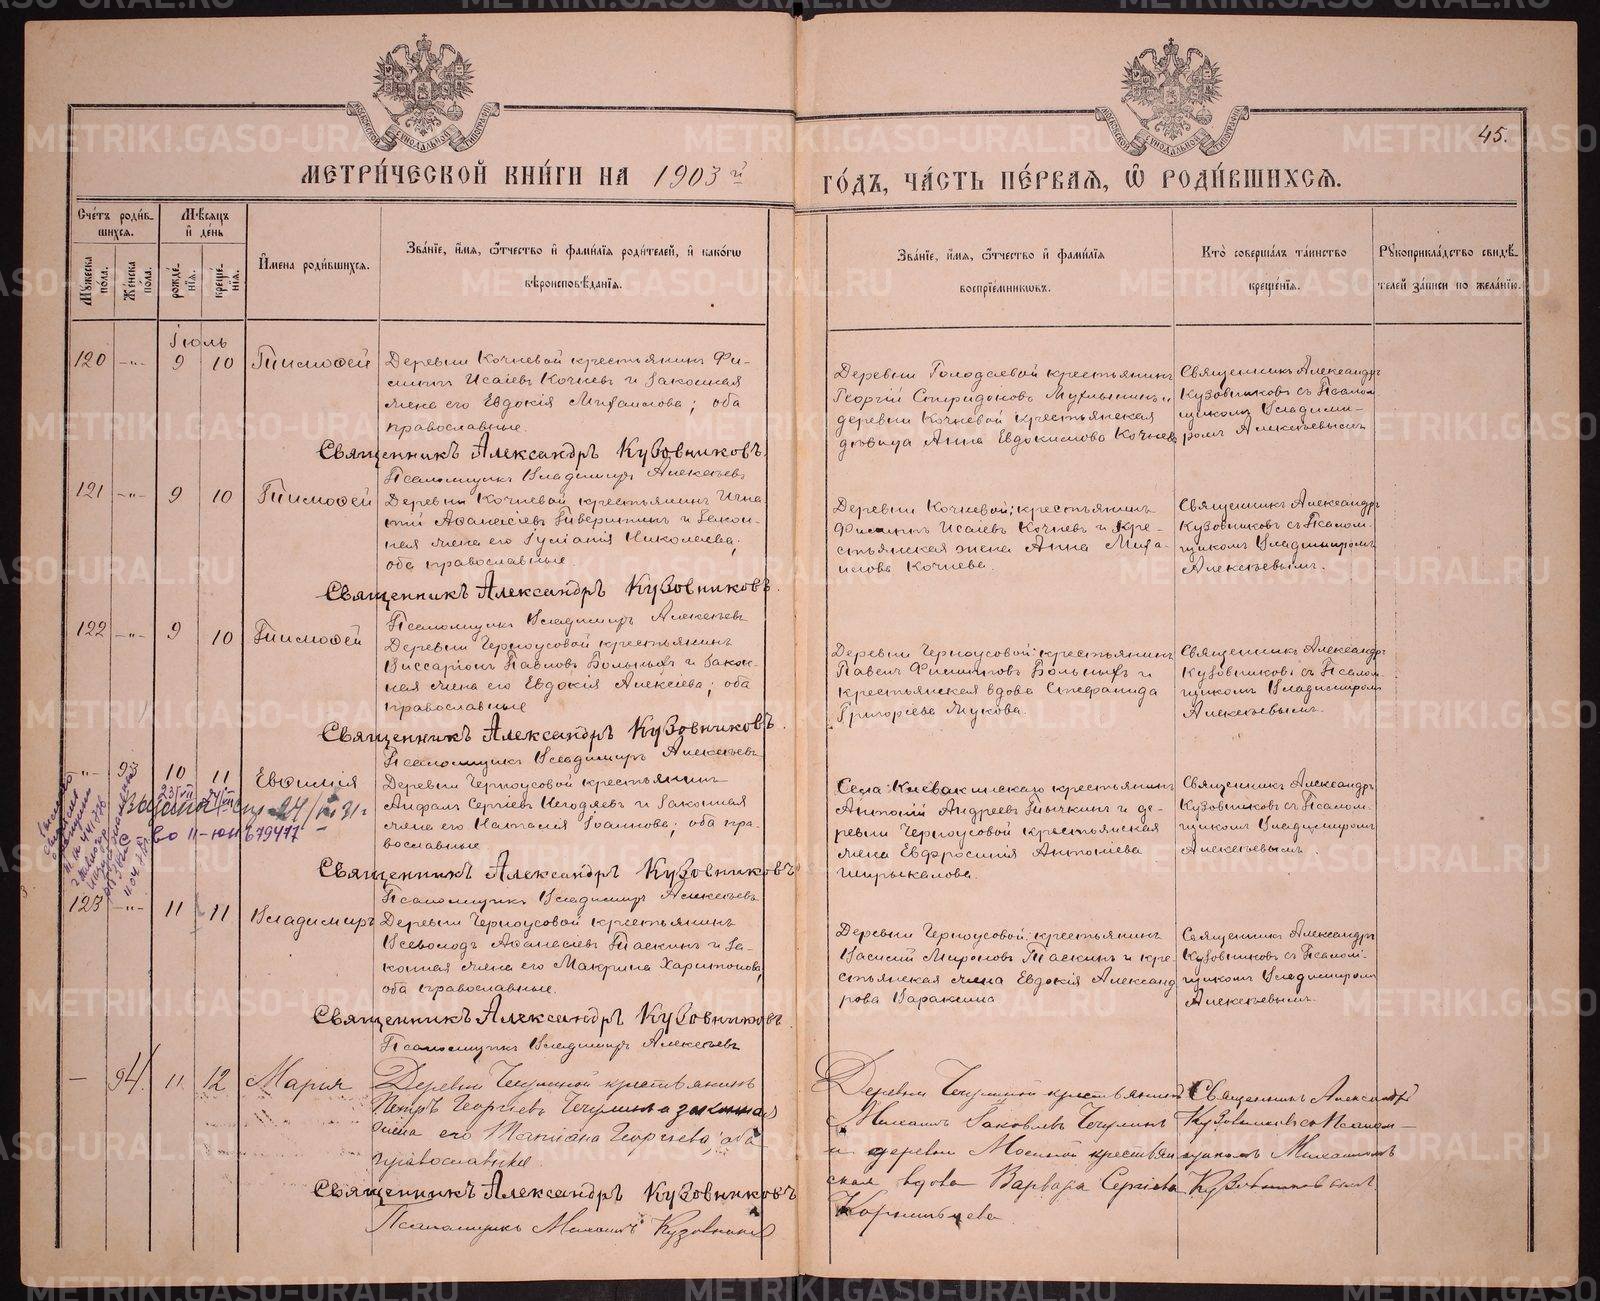 45.
МЕТРИ́ЧЕСКОЙ КНИ́ГИ НА 1903 й
ГО́ДЪ, ЧА́СТЬ ПЕ́РВАЯ, Ѡ РОДИ́ВШИХСЯ.
Сче́тъ роди́в-
шихся.
Мѣ́сяцъ
и де́нь
Му́жеска
по́ла.
Же́нска
по́ла.
рожде́-
нїя.
креще́-
нїя.
И́мена роди́вшихся.
Зва́нїе, и́мя, ѻ́тчество и фами́лїя роди́телей, и како́гѡ
вѣроисповѣ́данїя.
Зва́нїе, и́мя, ѻ́тчество и фами́лїя
воспрїе́мниковъ.
Кто̀ соверша́лъ та́инство
креще́нїя.
Рꙋкоприкла́дство свидѣ́-
телей за́писи по жела́нїю.
Іюль
120 -"- 9 10 Тимоѳей
Деревни Кочневой крестьянинъ Фи-
липпъ Исаіевъ Кочневъ и законная
жена его Евдокія Михаилова; оба
православные.
Священникъ Александръ Кузовниковъ.
Псаломщикъ Владимиръ Алексѣевъ
Деревни Голодаевой крестьянинъ
Георгій Спиридоновъ и
деревни Кочневой крестьянская
дѣвица Анна Евдокимова Кочнев
Священникъ Александръ
Кузовниковъ съ Псалом
щикомъ Владими-
ромъ Алексѣевымъ
121 -"- 9 10 Тимоѳей
Деревни Кочневой крестьянинъ Игна
тій Аѳанасіевъ и закон-
ная жена его Іуліанія Николаева;
оба православные.
Священникъ Александръ Кузовниковъ.
Псаломщикъ Владимиръ Алексѣевъ
Деревни Кочневой; крестьянинъ
Филиппъ Исаіевъ Кочневъ и кре-
стьянская жена Анна Миха-
илова Кочнева.
Священникъ Александръ
Кузовниковъ съ Псалом-
щикомъ Владимиромъ
Алексѣевымъ.
122 -"- 9 10 Тимоѳей
Деревни Черноусовой крестьянинъ
Виссаріонъ Павловъ Больныхъ и закон-
ная жена его Евдокія Алексіева; оба
православные
Священникъ Александръ Кузовниковъ.
Псаломщикъ Владимиръ Алексѣевъ
Деревни Черноусовой: крестьянинъ
Павелъ Филипповъ Больныхъ и
крестьянская вдова Стефанида
Григорьева Жукова.
Священникъ Александръ
Кузовниковъ съ Псалом
щикомъ Владимиромъ
Алексѣевымъ.
-"- 93 10 11 Евѳимія
Деревни Черноусовой крестьянинъ
Сергіевъ и законная
жена его Наталія Іоаннова; оба пра
вославные
Священникъ Александръ Кузовниковъ
Псаломщикъ Владимиръ Алексѣевъ
Села крестьянинъ
Антоній Андреевъ и де-
ревни Черноусовой крестьянская
жена Евфросинія Антоніева
Ширыкалова.
Священникъ Александръ
Кузовниковъ съ Псалом-
щикомъ Владимиромъ
Алексѣевымъ.
23/VII
II-ЮН 679477
123 -"- 11 11 Владимиръ
Деревни Черноусовой крестьянинъ
Всеволодъ Аѳанасіевъ Таскинъ и за-
конная жена его Макрина Харитонова,
оба православные.
Священникъ Александръ Кузовниковъ
Псаломщикъ Владимиръ Алексѣевъ
Деревни Черноусовой: крестьянинъ
Василій Мироновъ Таскинъ и кре-
стьянская жена Евдокія Александ
рова Варакина
Священникъ Александръ
Кузовниковъ съ Псалом-
щикомъ Владимиромъ
Алексѣевымъ.
— 94. 11. 12 Марія
Деревни крестьянинъ
Петръ Георгіевъ и законная
жена его Татіана Георгіева; оба
православные.
Священникъ Александръ Кузовниковъ
Псаломщикъ Михаилъ Кузовников
Деревни крестьянинъ
Михаилъ Іаковлевъ
и деревни Мосиной крестьян
ская вдова Варвара Сергіева
Корнильцева
Священникъ Александръ
Кузовниковъ съ Псалом-
щикомъ Михаиломъ
Кузовниковымъ
METRIKI.GASO-URAL.RU